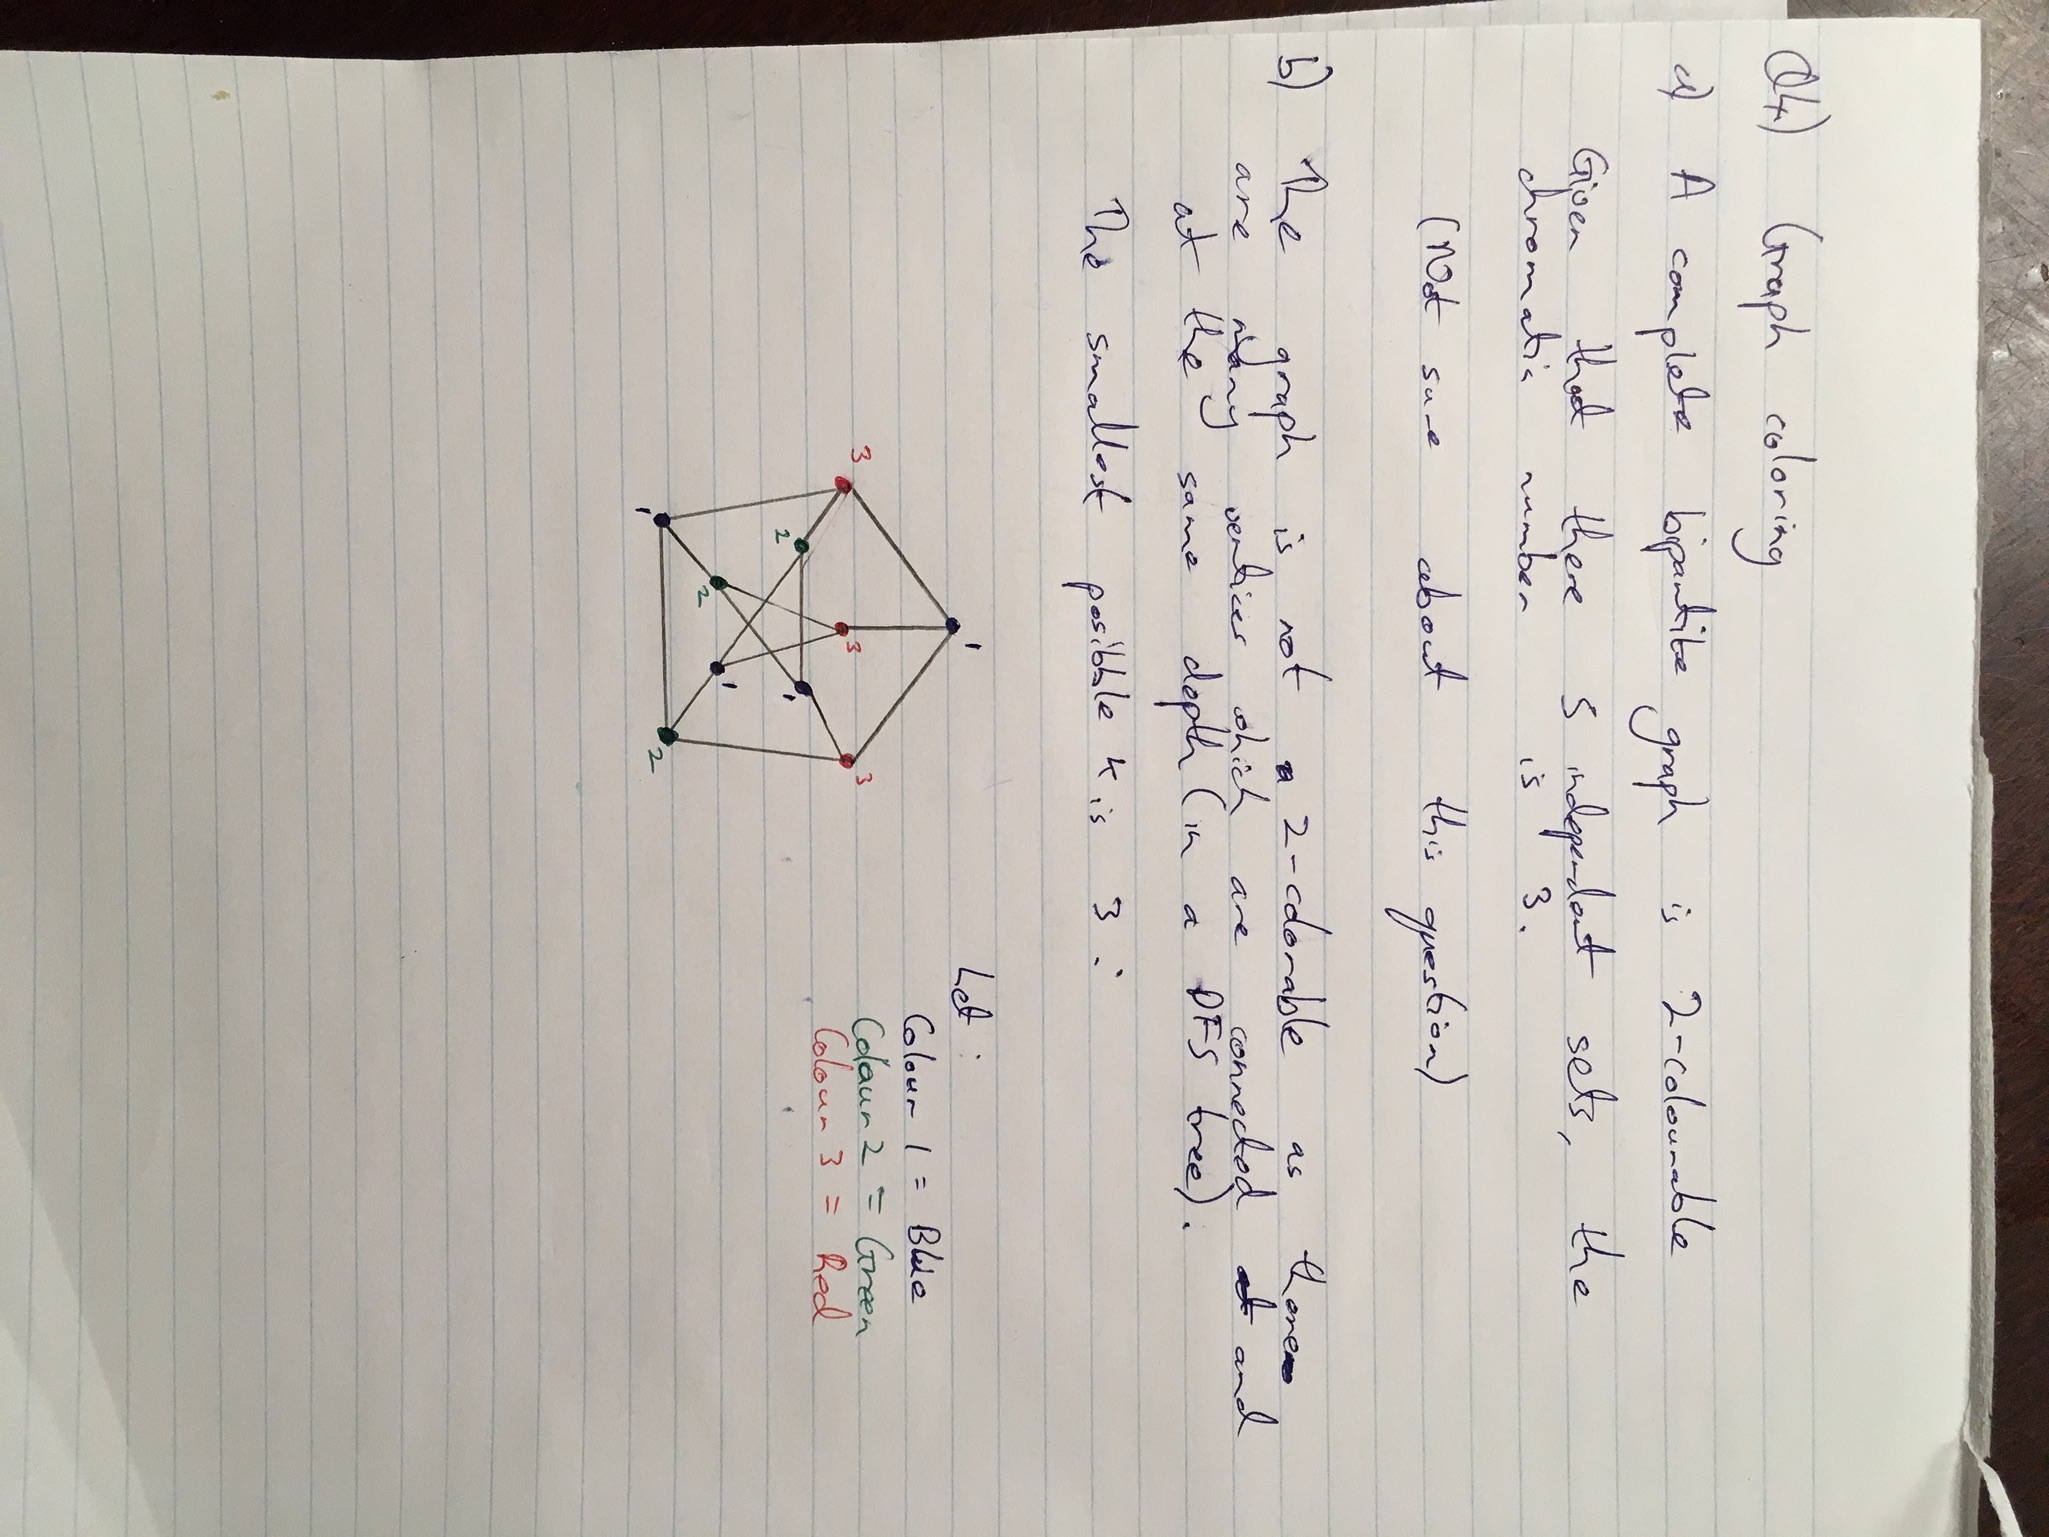 Q4) Graph coloring
a) A complete bipartite graph is 2-colourable
Given that there 5 independent sets, the
chromatic number is 3.
(Not sure about this question)
b) The graph is not a 2-colorable as there
are many vertices which are connected at and
at the same depth (in a DFS tree).
The smallest posibble k is 3:
1
3
3
3
2
1
2
1
1
2
Let:
Colour 1 = Blue
Colour 2 = Green
Colour 3 = Red